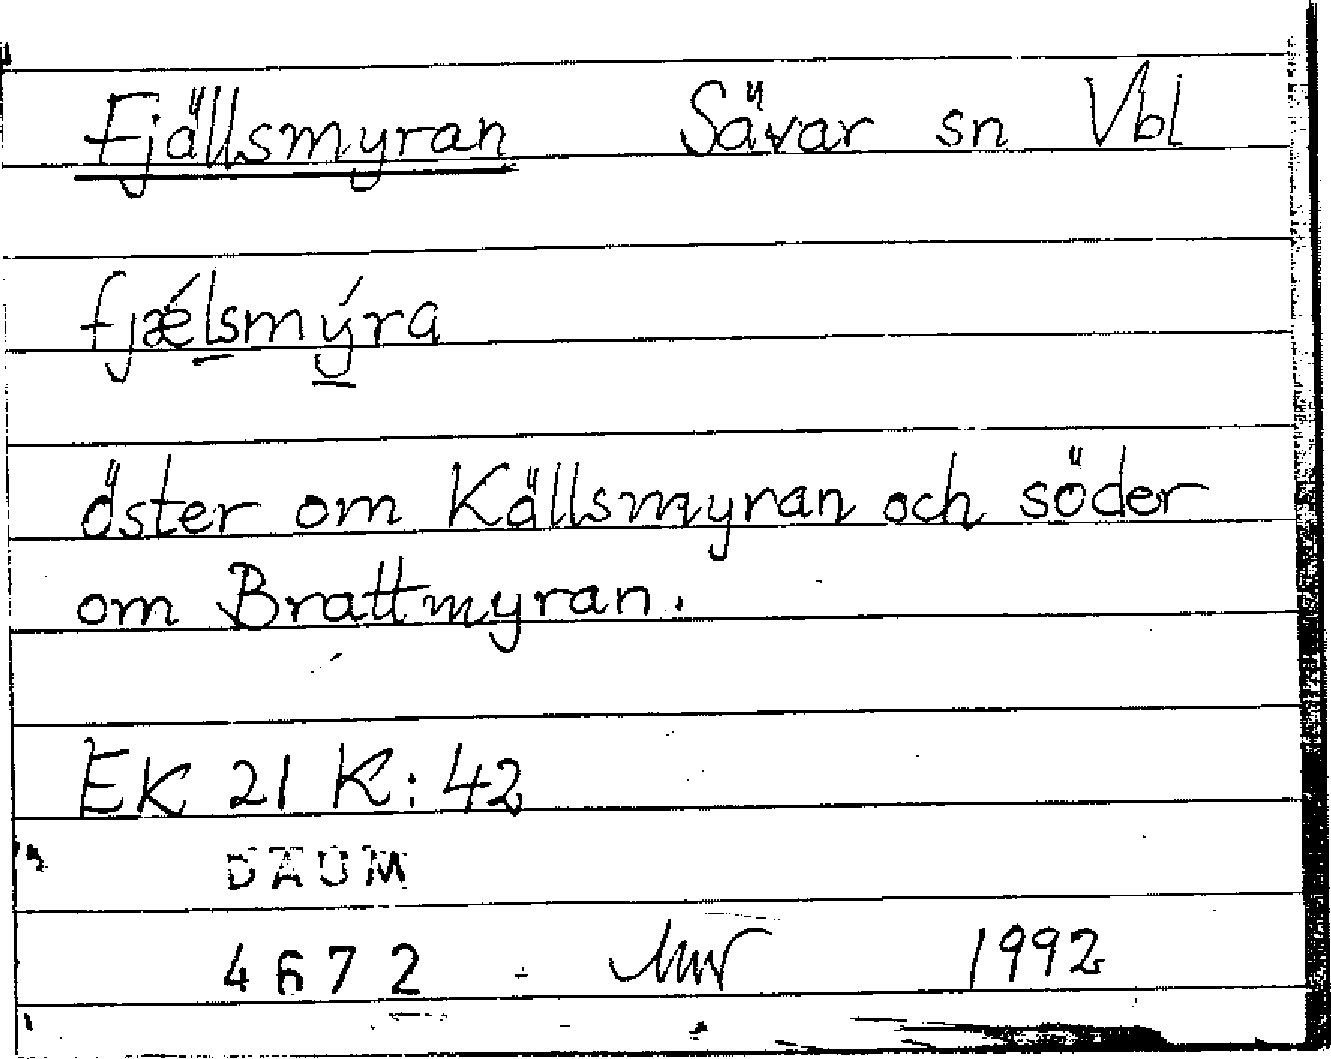 Fjällsmyran Sävar sn Vbl
fjǽlsmýra
öster om Källsmyran och söder
om Brattmyran.
EK 21 K: 42
DAUM
4672 1992